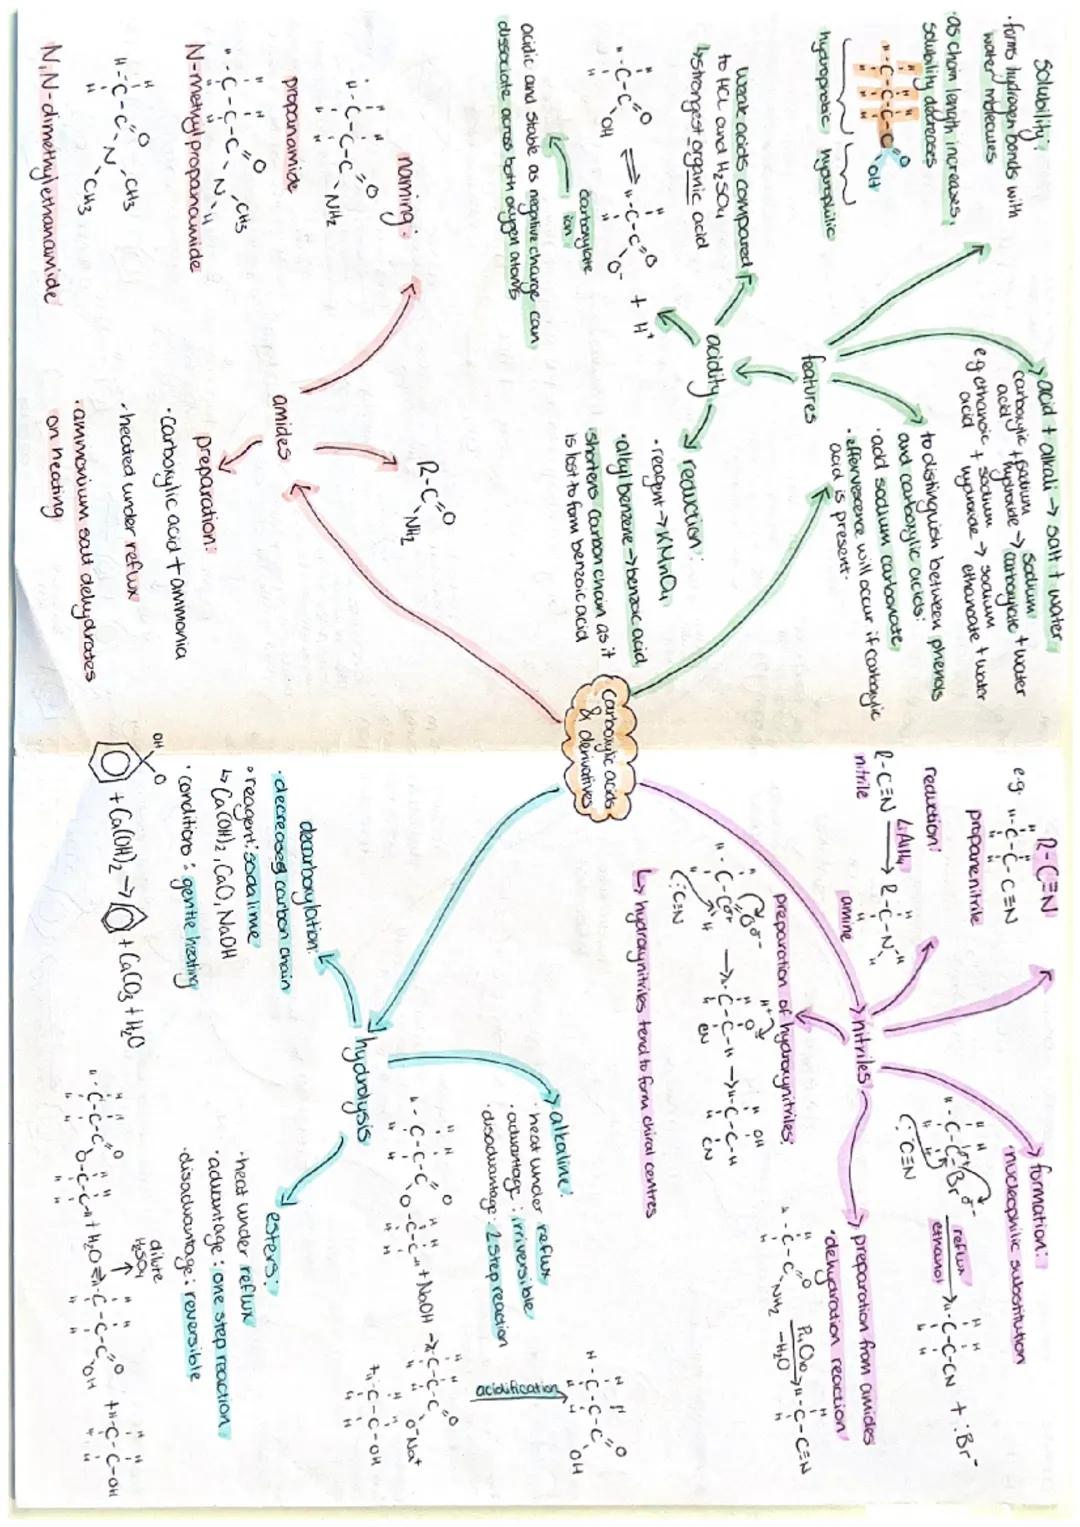 Carboxylic acids
& derivatives
features
solubility:
·forms hydrogen bonds with
water molecules
·as chain length increases,
solubility decreases
hydrophobic hydrophilic
acid + alkali → salt + water
carboxylic acid + sodium hydroxide → sodium carboxylate + water
e.g ethanoic acid + sodium hydroxide → sodium ethanoate + water
to distinguish between phenols
and carboxylic acids:
·add sodium carbonate,
·effervescence will occur if carboxylic
acid is present.
acidity
weak acids compared
to HCl and H₂SO₄
↳strongest organic acid
carboxylate
ion
acidic and stable as negative charge can
dissociate across both oxygen atoms
reduction:
·reagent → KMnO₄
·alkyl benzene → benzoic acid
shortens carbon chain as it
is lost to form benzoic acid
amides
R-C=O
NH₂
naming:
propanamide
N-methylpropanamide
N,N-dimethylethanamide
preparation:
·carboxylic acid + ammonia
·heated under reflux
·ammonium salt dehydrates
on heating
nitriles
R-C≡N
e.g. H-C-C-C≡N
propanenitrile
reduction:
R-C≡N LiAlH₄ → R-C-N-H
nitrile
amine
formation:
·nucleophilic substitution
reflux
ethanol
H-C-C-CN + :Br⁻
preparation of hydroxynitriles:
↳ hydroxynitriles tend to form chiral centres
preparation from amides
·dehydration reaction
P₄O₁₀
-H₂O
H-C-C≡N
hydrolysis
alkaline:
·heat under reflux
·advantage: irriversible
·disadvantage: 2 step reaction
+ NaOH →
O⁻Na⁺
+ H-C-C-OH
acidification
esters:
·heat under reflux
·advantage: one step reaction
·disadvantage: reversible
dilute
H₂SO₄
+ H₂O ⇌
+ H-C-C-OH
decarboxylation:
·decreases carbon chain
·reagent: sodalime
↳ Ca(OH)₂, CaO, NaOH
·conditions: gentle heating
+ Ca(OH)₂ → + CaCO₃ + H₂O